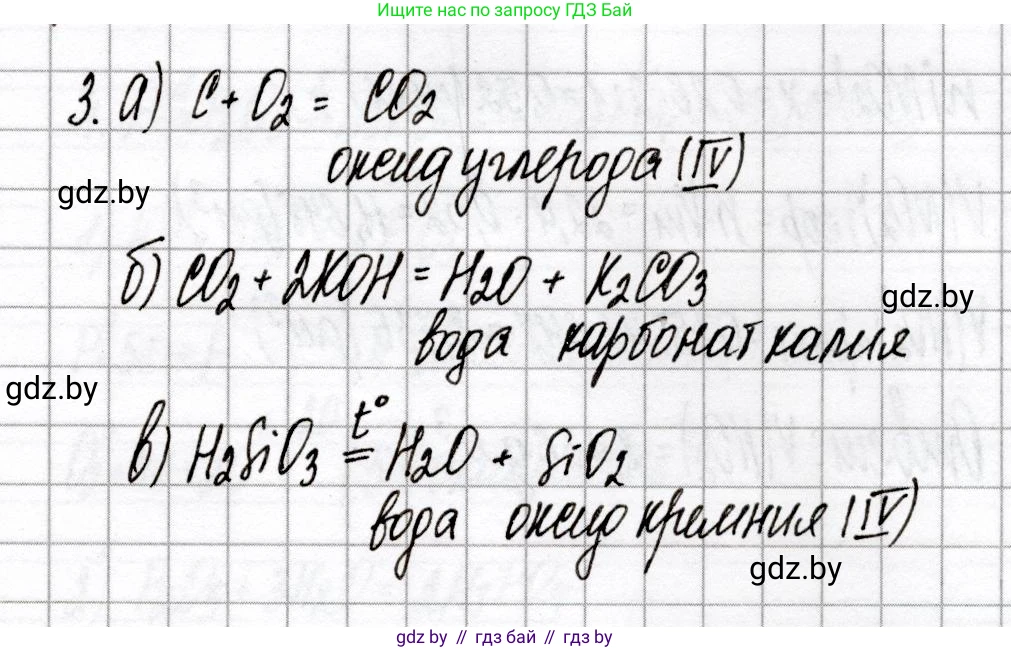 Ищите нас по запросу ГДЗ Бай
3. а) C + O2 = CO2
оксид углерода (IV)
gdz.by
б) CO2 + 2KOH = H2O + K2CO3
gdz.by
вода карбонат калия
gdz.by
в) H2SiO3 t° = H2O + SiO2
вода оксид кремния (IV)
gdz.by
gdz by // гдз бай // гдз by